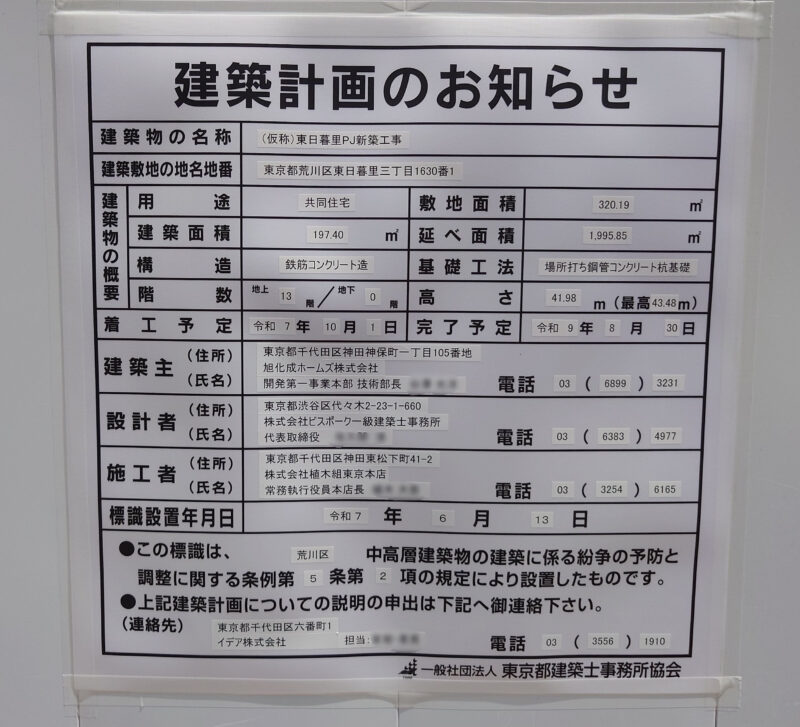 建築計画のお知らせ
建築物の名称 (仮称)東日暮里PJ新築工事
建築敷地の地名地番 東京都荒川区東日暮里三丁目1630番1
建築物の概要
用途 共同住宅 敷地面積 320.19 ㎡
建築面積 197.40 ㎡ 延べ面積 1,995.85 ㎡
構造 鉄筋コンクリート造 基礎工法 場所打ち鋼管コンクリート杭基礎
階数 地上 13 階/地下 0 階 高さ 41.98 m(最高43.48m)
着工予定 令和 7 年 10 月 1 日 完了予定 令和 9 年 8 月 30 日
建築主 (住所) 東京都千代田区神田神保町一丁目105番地
旭化成ホームズ株式会社
(氏名) 開発第一事業本部 技術部長 電話 03 ( 6899 ) 3231
設計者 (住所) 東京都渋谷区代々木2-23-1-660
株式会社ビスポーク一級建築士事務所
(氏名) 代表取締役 電話 03 ( 6383 ) 4977
施工者 (住所) 東京都千代田区神田東松下町41-2
株式会社植木組東京本店
(氏名) 常務執行役員本店長 電話 03 ( 3254 ) 6165
標識設置年月日 令和7 年 6 月 13 日
●この標識は、 荒川区 中高層建築物の建築に係る紛争の予防と
調整に関する条例第 5 条第 2 項の規定により設置したものです。
●上記建築計画についての説明の申出は下記へ御連絡下さい。
(連絡先) 東京都千代田区六番町1
イデア株式会社 担当: 電話 03 ( 3556 ) 1910
一般社団法人 東京都建築士事務所協会